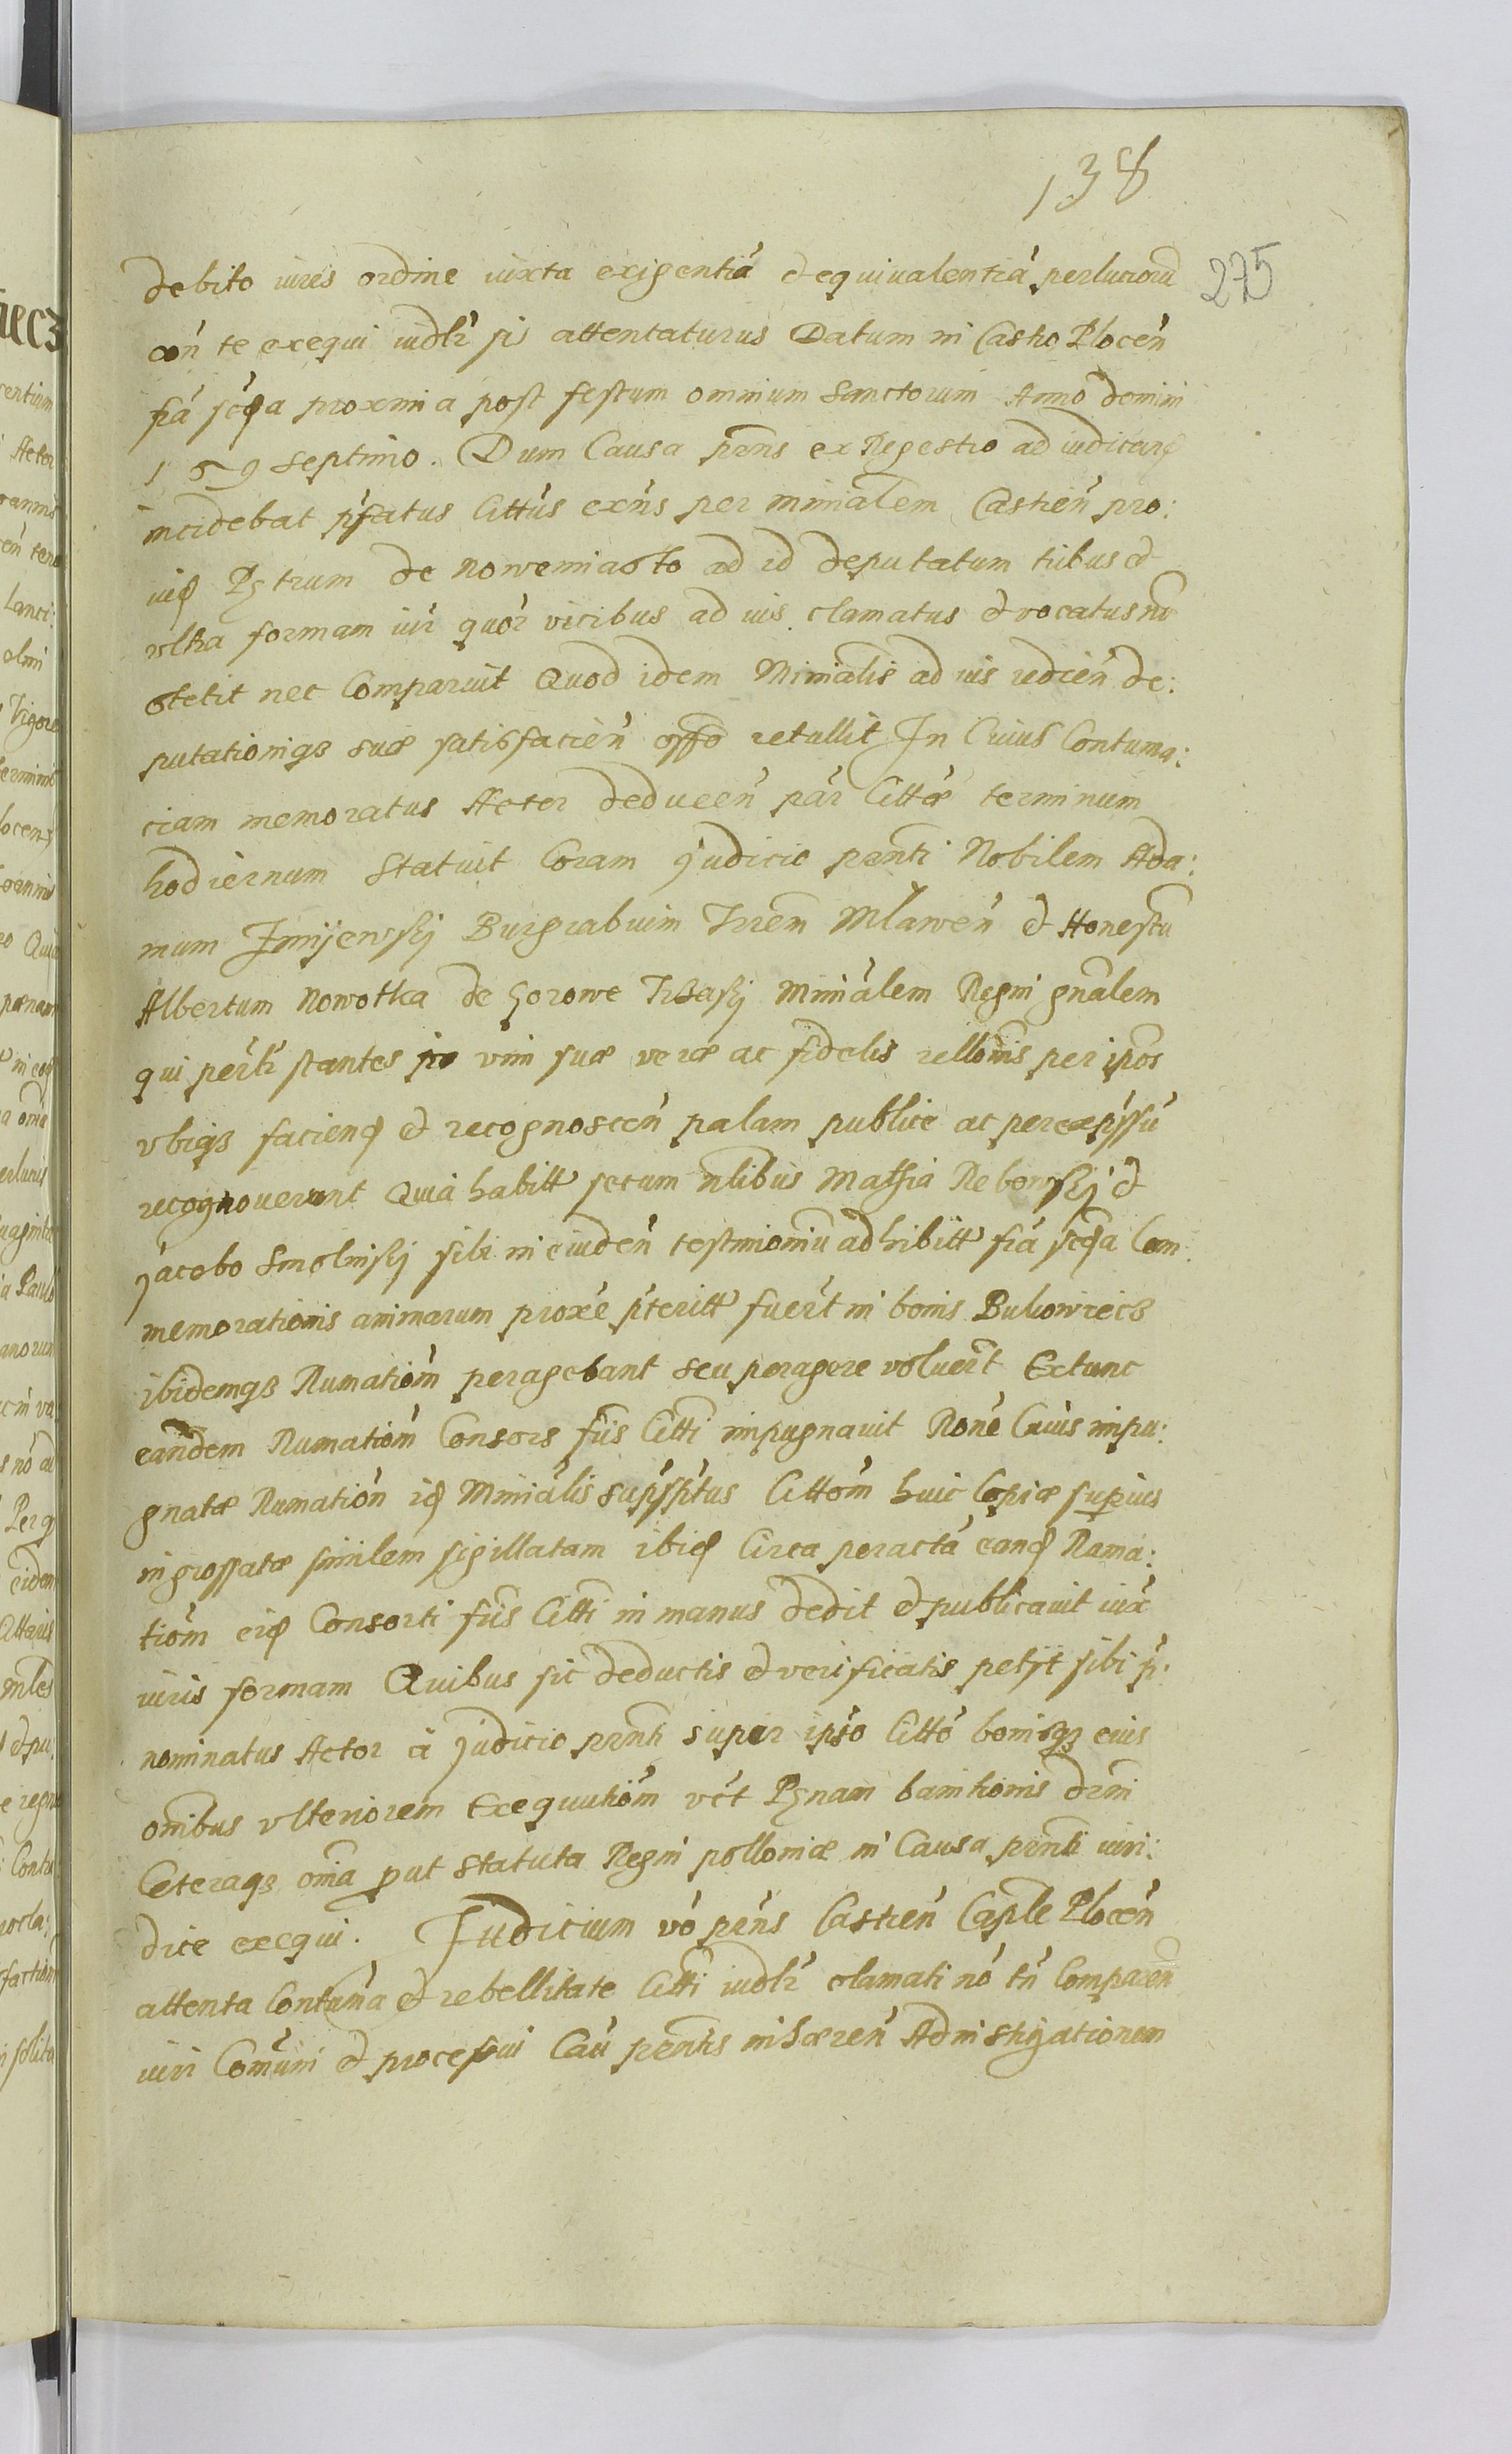 138
275
debito iuris ordine iuxta exigentiã & equiualentiã perlucrorũ
con̄ te exequi iudlr̃ sis attentaturus Datum in Castro Plocen̄
fr̃a scđa proxima post festum omnium Sanctorum Anno domini
159 septimo. Dum Causa pr̃ns ex Regestro ad iudicanđ
incidebat p̃fatus Cittus exñs per minĩalem Castren̄ pro:
uiđ Petrum de nowemiasto ad id deputatum tribus &
vltra formam iur̃ quor̃ vicibus ad ius clamatus & vocatus nõ
stetit nec Comparuit Quod idem Ministialis ad ius redien̄ de:
putationiqȝ suæ satisfacien̄ offo retullit In Cuius Contuma:
ciam memoratus Actor deducen̄ par̃ Cittæ terminum
hodiernum Statuit Coram Judicio prñti Nobilem Ada:
mum Jnnijewskj Burgrabium Trrem Mlawen̄ & Honestũ
Albertum Nowotka de Gorowe Trbaskj Miniãlem Regni gñalem
qui per̃lr̃ stantes in vim suæ veræ ac fidelis rellonis per ipos
vbiqȝ faciend & recognoscen̄ palam publice ac per expssũ
recognouerunt Quia habitt secum nlibus Mathia Rebowskj &
Jacobo Smolinskj sibi in euiden̄ testmioniũ adhibitt fr̃a scđa Com
memorationis animarum proxe p̃teritt fuer̃t in bonis Bulkowiecȝ
ibidemqȝ Rumatiom̃ peragebant seu peragere voluer̃t Extunc
eandem Rumatiom̃ Consors fris Citti impugnauit Rone Cuius impu:
gnatæ Rumation̄ iđ Miniãlis sup̃sptus Cittom̃ huic Copiæ superius
ingrossatæ similem sigillatam ibiđ Circa peractã eanđ Ruma:
tiom̃ eiđ Consorti fris Citti in manus dedit & publicauit iux̃
iuris formam Quibus sic deductis & verificatis petijt sibi p̃
nominatus Actor à Judicio prñti super ipso Citto bonisqȝ eius
omibus vlteriorem Exequutiom̃ vct Pęnam banitionis drñi
Ceteraqȝ oma put Statuta Regni polloniæ in Causa prñti iuri:
dice exequi. Judicium võ prñs Castren̄ Caple Plocen̄
attenta Contuma & rebellitate Citti iudlr̃ clamati nõ tñ Comparen̄
iuri Comuni & processui Cau prñtis inhæren̄ Ad instigationem